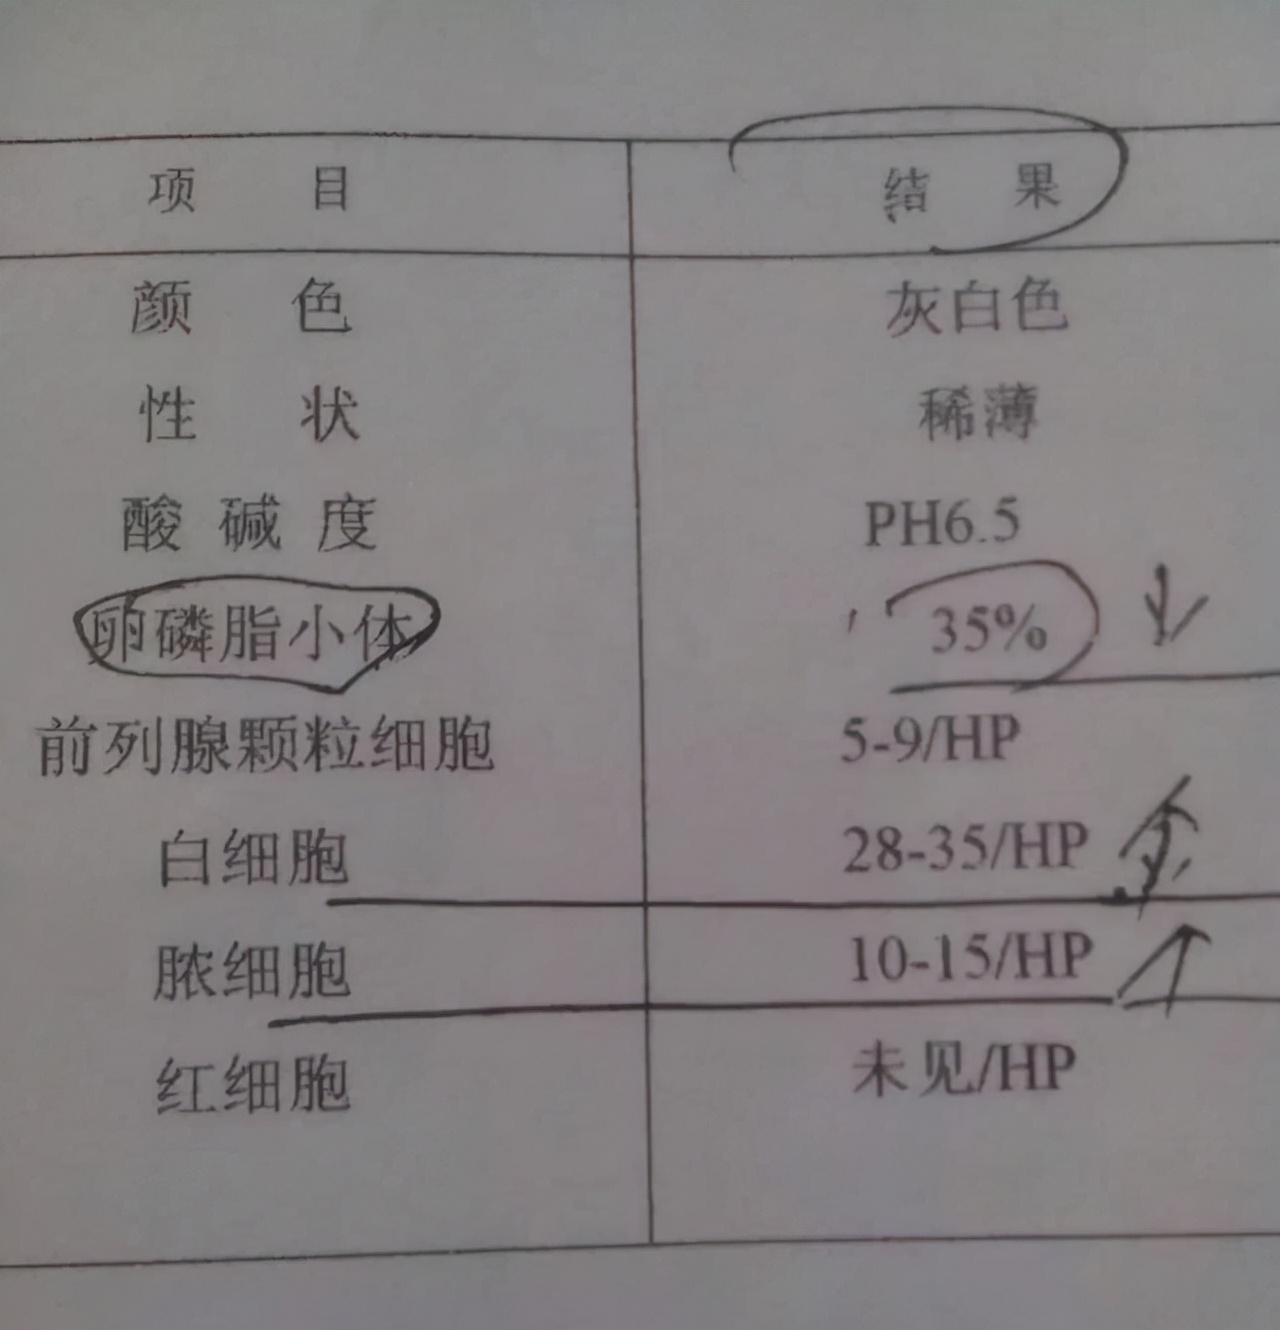 项 目 结 果
颜 色 灰白色
性 状 稀薄
酸 碱 度 PH6.5
卵磷脂小体 35% ↓
前列腺颗粒细胞 5-9/HP
白细胞 28-35/HP ↑
脓细胞 10-15/HP ↑
红细胞 未见/HP